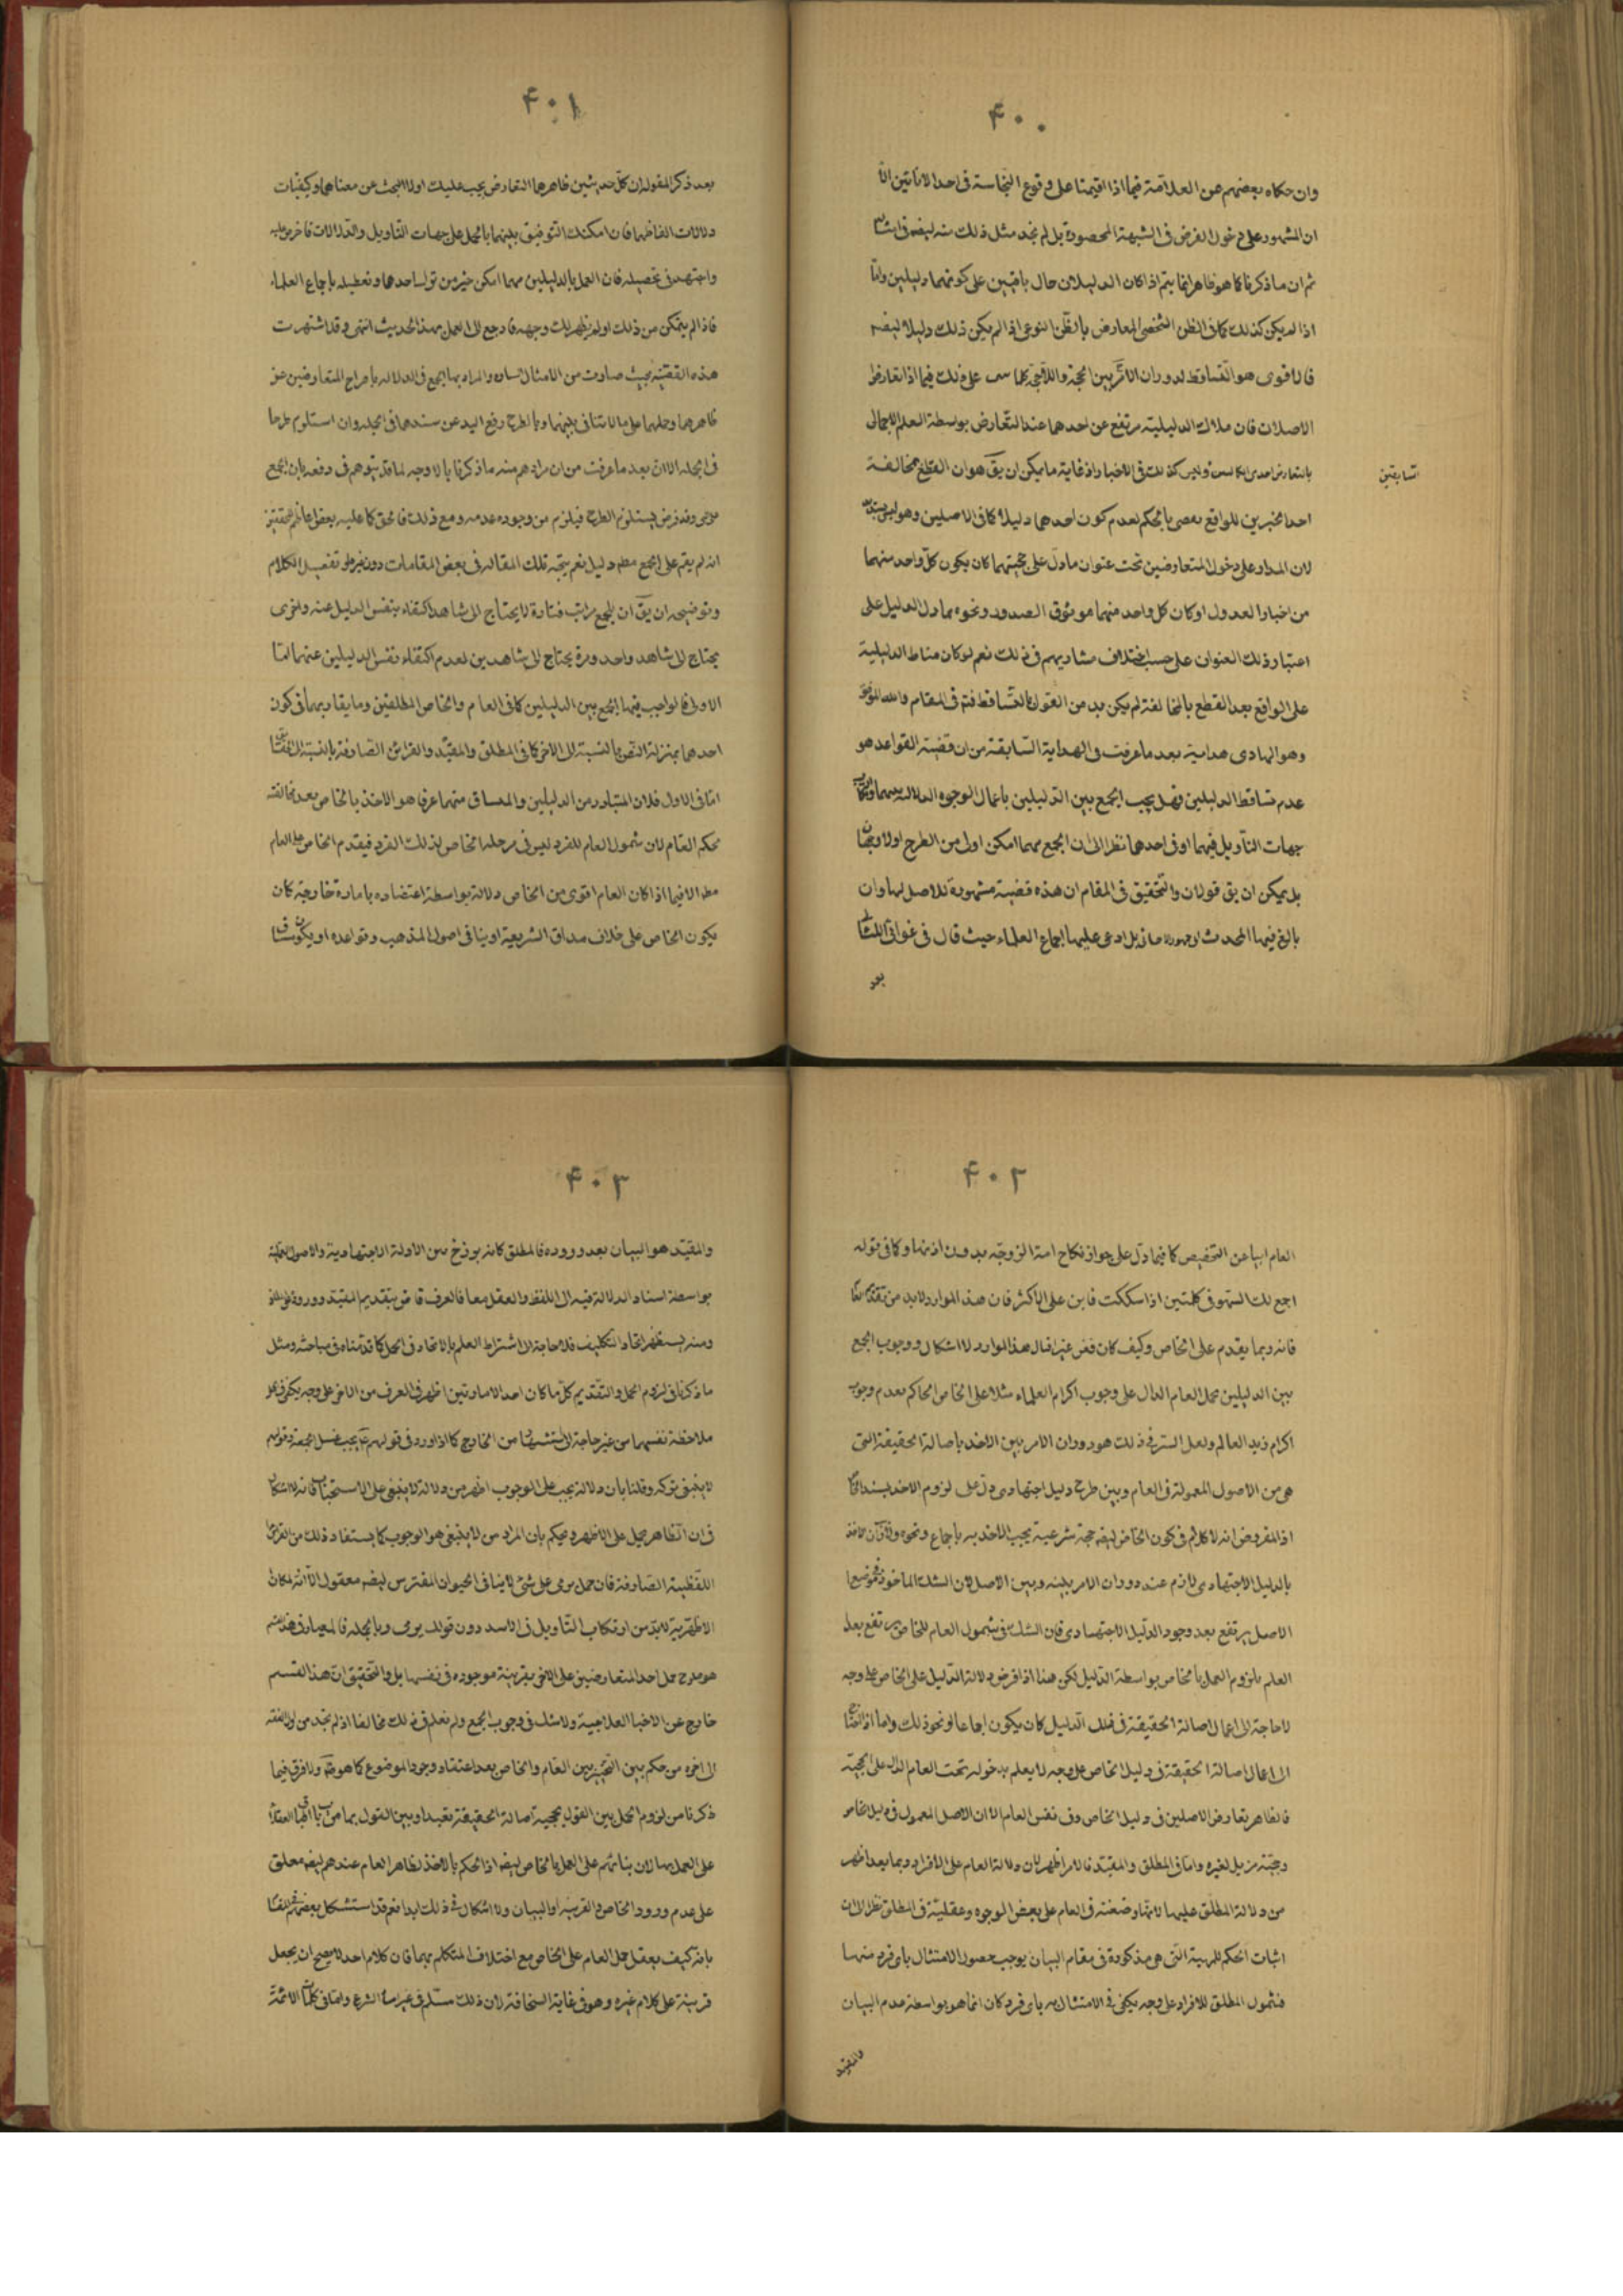 ۴۰۰
وان حكاه بعضهم عن العلامة فيما اذا اقيمتا على وقوع النجاسة فى احد الانائين الا
ان المشهور على دخول الفرض فى الشبهة المحصورة بل لم نجد مثل ذلك منه ايضه فى
ثم ان ما ذكرنا كما هو ظاهر انما يتم اذا كان الدليلان حال باقيين على كونهما دليلين واما
اذا لم يكن كذلك كما فى الظن الشخصى المعارض بالظن النوعى اذ لم يكن ذلك دليلا ايضه
فالاقوى هو التساقط لدوران الامر بين الحجة واللاحجة كما على ذلك فيما اذا تعارض
الاصلان فان ملاك الدليلية مرتفع عن احدهما عند التعارض بواسطة العلم الاجمالى
وليس كذلك فى الاخبار اذ غاية ما يمكن ان يق هو ان القطع بمخالفة
السابقين
احد الخبرين للواقع بالحكم لعدم كون احدهما دليلا كما فى الاصلين وهو ليس بسديد
لان المدار على دخول المتعارضين تحت عنوان ما دل على حجيتهما كان يكون كل واحد منهما
من اخبار العدول او كان كل واحد منهما موثوق الصدور ونحوه مما دل الدليل على
اعتبار ذلك العنوان على حسب اختلاف مشاربهم فى ذلك نعم لو كان مناط الدليلية
على الواقع بعد القطع بالمخالفة لم يكن بد من القول بالتساقط فتم فى المقام والله الموفق
وهو الهادى هداية بعد ما عرفت فى الهداية السابقة من ان قضية القواعد هو
عدم تساقط الدليلين فهل يجب الجمع بين الدليلين باعمال الوجوه الدلالية بينهما
جهات التأويل فيهما او فى احدهما نظرا الى ان الجمع مهما امكن اولى من الطرح اولا وجهان
بل يمكن ان يق قولان والتحقيق فى المقام ان هذه قضية مشهورة لا اصل لها وان
بالغ فيها المحدث بل ادعى عليها اجماع العلماء حيث قال فى غوالى اللئالى
بعد
۴۰۱
بعد ذكر المقوله ان كل حديثين ظاهرهما التعارض يجب عليك اولا البحث عن معناهما وكيفيات
دلالات الفاظهما فان امكنك التوفيق بينهما بالحمل على جهات التأويل والدلالات فاحرص عليه
واجتهد فى تحصيله فان العمل بالدليلين مهما امكن خير من ترك احدهما وتعطيله باجماع العلماء
فاذا لم يتمكن من ذلك او لم يظهر لك وجهه فارجع الى العمل بهذا الحديث انتهى وقد اشتهرت
هذه القضية بحيث صارت من الامثال السايره والمراد بها الجمع فى الدلاله باخراج المتعارضين عن
ظاهرهما وحملهما على ما لا تنافى بينهما وبالطرح رفع اليد عن سندهما فى الجمله وان استلزم طرحا
فى الجمله الا ان بعد ما عرفت من ان مرادهم منه ما ذكرنا بالاوجه لما قد يتوهم فى دفعه بان الجمع
وقد فرض يستلزم الطرح فيلزم من وجوده عدمه ومع ذلك فالحق كما عليه بعض
انه لم يقم على الجمع مطه دليل نعم يتجه تلك المقاله فى بعض المقامات دون غيره وتفصيل الكلام
وتوضيحه ان يق ان للجمع مراتب فتارة لا يحتاج الى شاهد اكتفاء بنفس الدليل عنه واخرى
يحتاج الى شاهد واحد ومرة يحتاج الى شاهدين لعدم اكتفاء نفس الدليلين عنهما اما
الاولى فالواجب فيها الجمع بين الدليلين كما فى العام والخاص المطلقين وما يقاربهما فى كون
احدهما بمنزلة النص بالنسبة الى الاخر كما فى المطلق والمقيد والقرائن الصارفة بالنسبة الى
اما فى الاول فلان المتبادر من الدليلين والمنساق منهما عرفا هو الاخذ بالخاص بعد مخالفته
لحكم العام لان شمول العام للفرد ليس فى مرحله الخاص لذلك الفرد فيقدم الخاص على العام
مطه الا فيما اذا كان العام اقوى من الخاص دلالة بواسطة اعتضاده بامارة خارجة كان
يكون الخاص على خلاف مذاق الشريعة او ينافى اصول المذهب وقواعده او يكون
۴۰۲
العام ابيا عن التخصيص كما فيما دل على جواز نكاح امة الزوجة بدون اذنها وكما فى قوله
اجمع لك السهو فى كلمتين اذا شككت فابن على الاكثر فان هذه الموارد لا بد من
فانه ربما يقدم على الخاص وكيف كان ففى غير امثال هذه الموارد لا اشكال ووجوب الجمع
بين الدليلين بحمل العام الدال على وجوب اكرام العلماء مثلا على الخاص الحاكم بعدم وجوب
اكرام زيد العالم ولعل السر فى ذلك هو دوران الامر بين الاخذ باصالة الحقيقة التى
هى من الاصول المعمولة فى العام وبين طرح دليل اجتهادى دل على لزوم الاخذ بسند
اذ المفروض انه لا كلام فى كون الخاص ايضه حجة شرعية يجب الاخذ به باجماع ونحوه
بالدليل الاجتهادى لازم عند دوران الامر بينه وبين الاصل لان الشك الماخوذ فى موضوع
الاصل يرتفع بعد وجود الدليل الاجتهادى فان الشك فى شمول العام للخاص يرتفع بعد
العلم بلزوم العمل بالخاص بواسطة الدليل لكن هذا اذا فرض دلالة الدليل على الخاص على وجه
لا حاجة الى اعمال اصالة الحقيقة فى ذلك الدليل كان يكون اجماعا ونحو ذلك واما اذا احتجنا
الى اعمال اصالة الحقيقة فى دليل الخاص على وجه لا يعلم بدخوله تحت العام الدال على الحجية
فالظاهر تعارض الاصلين فى دليل الخاص وفى نفس العام الا ان الاصل المعمول فى دليل الخاص
وحجيته مزيل لغيره واما فى المطلق والمقيد فالامر اظهر لان دلالة العام على الافراد ربما يعد اظهر
من دلالة المطلق عليها لانها وضعية فى العام على بعض الوجوه وعقلية فى المطلق نظرا الى ان
اثبات الحكم للمهية التى هى مذكورة فى مقام البيان يوجب حصول الامتثال باى فرد منها
فشمول المطلق للافراد على وجه يكفى فى الامتثال به باى فرد كان انما هو بواسطة عدم البيان
والمقيد
۴۰۳
والمقيد هو البيان بعد وروده فالمطلق كانه برزخ بين الادلة الاجتهادية والاصول العملية
بواسطة استناد الدلالة فيه الى اللفظ والعقل معا فالعرف قاض بتقديم المقيد ووروده على
ومنه يستظهر اتحاد التكليف فلا حاجة الى اشتراط العلم بالاتحاد فى الحمل كما قدمناه فى مباحثه ومثل
ما ذكرنا فى لزوم الحمل والتقديم كل ما كان احد الامارتين اظهر فى العرف من الاخر على وجه يكفى فى
ملاحظة نفسهما من غير حاجة الى استشهاد من الخارج كما اذا ورد فى قولهم يجب غسل الجمعة وقوله
لا ينبغى تركه وقلنا بان دلالة يجب على الوجوب اظهر من دلالة لا ينبغى على الاستحباب فانه لا اشكال
فى ان الظاهر يحمل على الاظهر ويحكم بان المراد من لا ينبغى هو الوجوب كما يستفاد ذلك من القرائن
اللفظية الصارفة فان حمل يرمى على شئ لا ينافى الحيوان المفترس ايضه معقول الا انه لمكان
الاظهرية لا بد من ارتكاب التأويل فى الاسد دون قولك يرمى وبالجمله فالمعيار فى هذا القسم
هو حمل احد المتعارضين على الاخر بقرينة موجوده فى نفسهما بل والتحقيق ان هذا القسم
خارج عن الاخبار العلاجية ولا شك فى وجوب الجمع ولم نعلم فى ذلك مخالفا اذ لم نجد من اول الفقه
الى اخره من حكم بين التخيير بين العام والخاص بعد اعتقاد وجود الموضوع كما هو ولا فرق فيما
ذكرنا من لزوم الحمل بين القول بحجية اصالة الحقيقة تعبدا وبين القول بها من باب
على العمل بها لان بنائهم على العمل بالخاص ايضه اذ الحكم بالاخذ بظاهر العام عندهم ايضه معلق
على عدم ورود الخاص والقرينة والبيان ولا اشكال فى ذلك ابدا نعم قد استشكل بعضهم فى المقام
بانه كيف يعقل حمل العام على الخاص مع اختلاف المتكلم بهما فان كلام احد لا يصح ان يجعل
قرينة على كلام غيره وهو فى غاية السخافة لان ذلك مسلم فى غير امناء الشرع واما فى كلمات الائمة